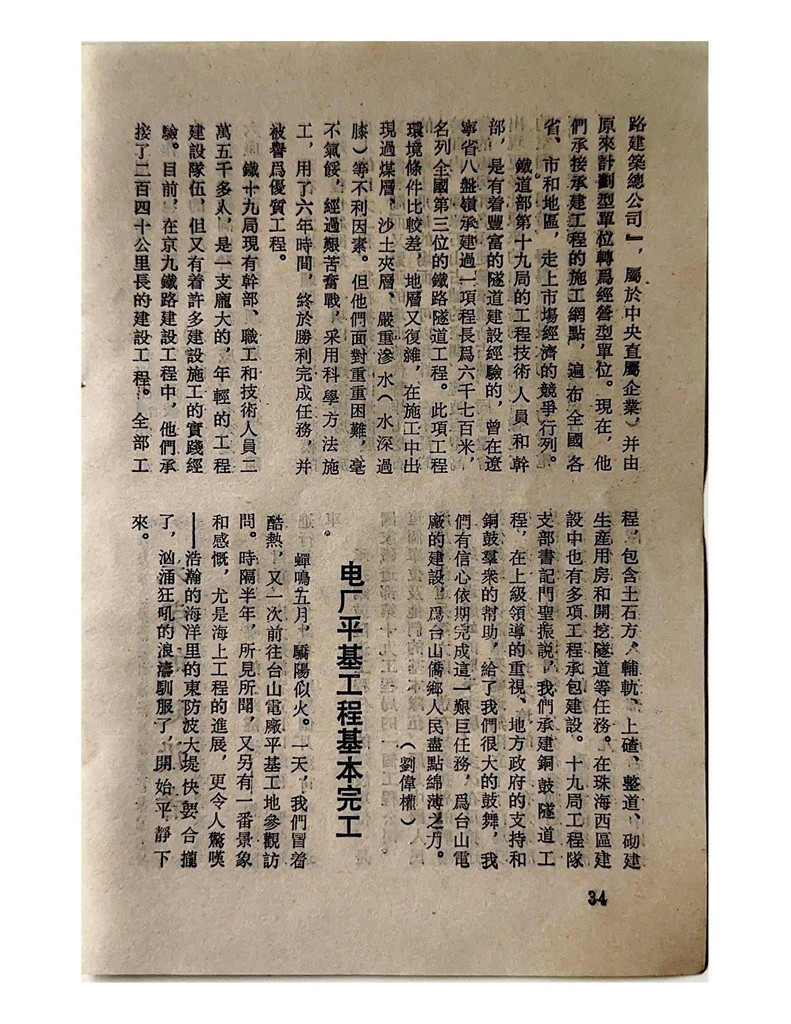 路建築總公司』，屬於中央直屬企業）并由
原來計劃型單位轉爲經營型單位。現在，他
們承接承建工程的施工網點，遍布全國各
省、市和地區，走上市場經濟的競爭行列。
鐵道部第十九局的工程技術人員和幹
部，是有着豐富的隧道建設經驗的，曾在遼
寧省八盤嶺承建過一項程長爲六千七百米，
名列全國第三位的鐵路隧道工程。此項工程
環境條件比較差，地層又復雜，在施工中出
現過煤層、沙土夾層、嚴重滲水（水深過
膝）等不利因素。但他們面對重重困難，毫
不氣餒，經過艱苦奮戰，采用科學方法施
工，用了六年時間，終於勝利完成任務，并
被譽爲優質工程。
鐵十九局現有幹部、職工和技術人員二
萬五千多人，是一支龐大的，年輕的工程
建設隊伍，但又有着許多建設施工的實踐經
驗。目前，在京九鐵路建設工程中，他們承
接了二百四十公里長的建設工程。全部工
程，包含土石方、輔軌、上碴、整道、砌建
生産用房和開挖隧道等任務。在珠海西區建
設中也有多項工程承包建設。十九局工程隊
支部書記門聖振説，我們承建銅鼓隧道工
程，在上級領導的重視、地方政府的支持和
銅鼓羣衆的幫助，給了我們很大的鼓舞，我
們有信心依期完成這一艱巨任務，爲台山電
廠的建設，爲台山僑鄉人民盡點綿薄之力。
（劉偉權）
电厂平基工程基本完工
蟬鳴五月，驕陽似火。一天，我們冒着
酷熱，又一次前往台山電廠平基工地參觀訪
問。時隔半年，所見所聞，又另有一番景象
和感慨，尤是海上工程的進展，更令人驚嘆
——浩瀚的海洋里的東防波大堤快要合攏
了，洶涌狂吼的浪濤馴服了，開始平靜下
來。
34